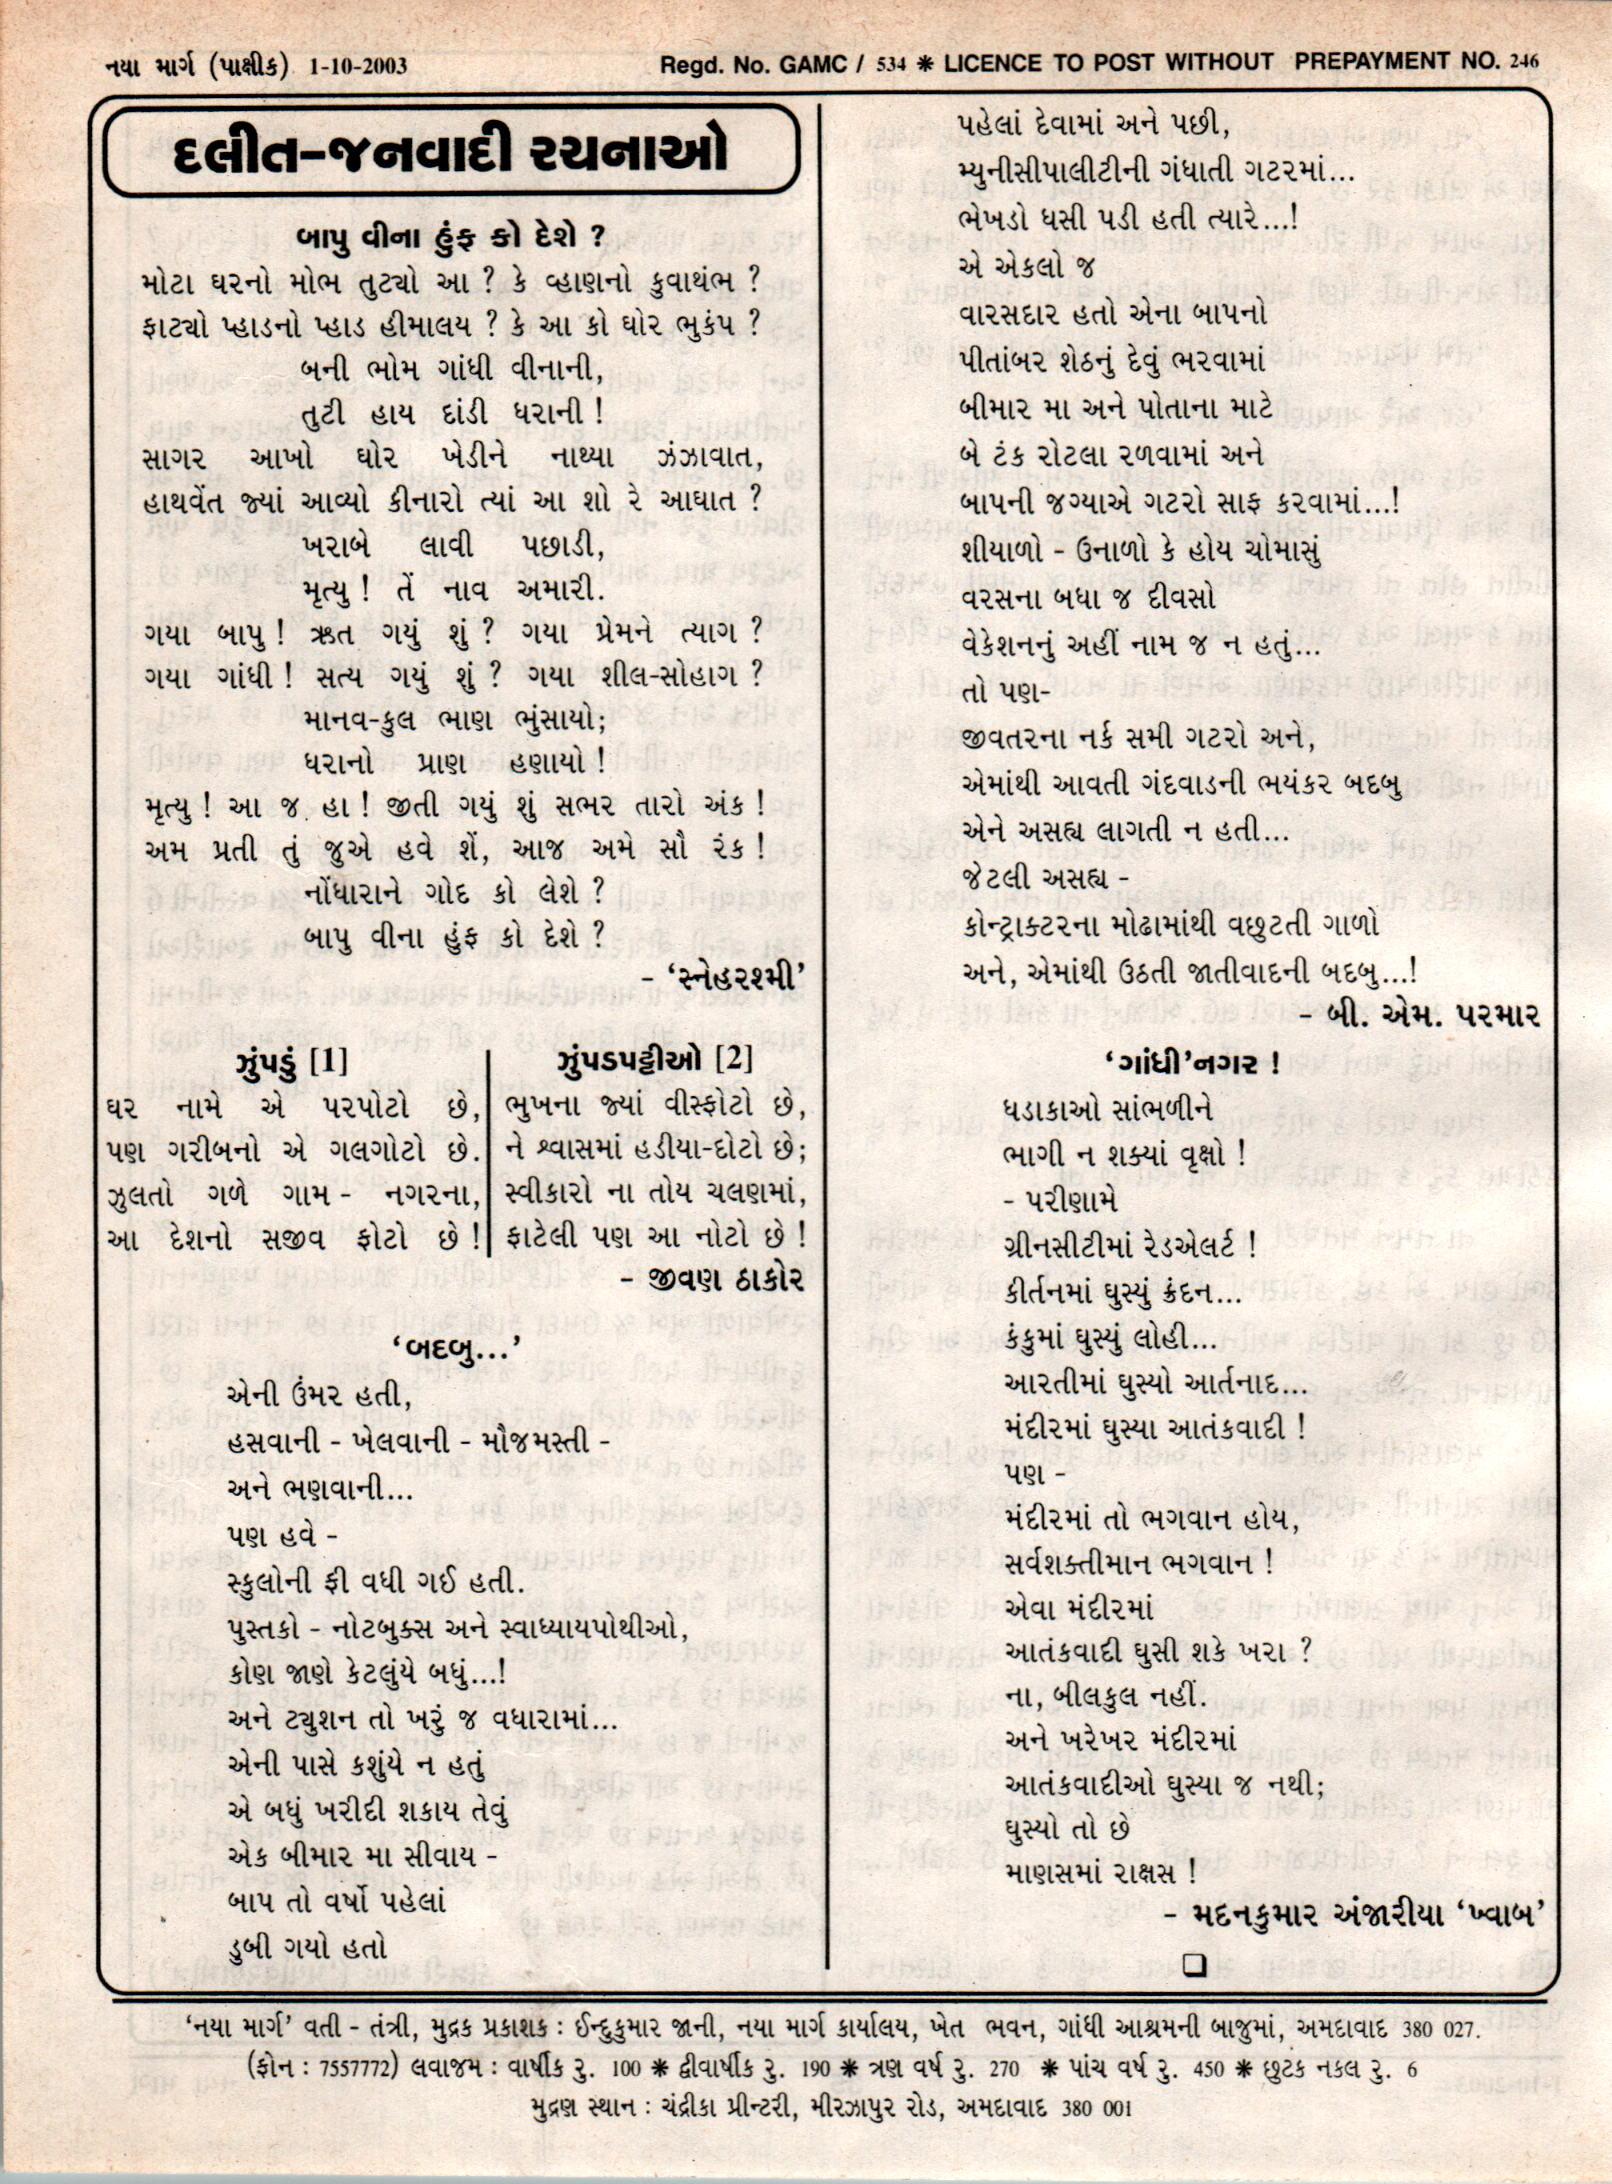 નયા માર્ગ (પાક્ષીક) 1-10-2003
Regd. No. GAMC / 534 ✱ LICENCE TO POST WITHOUT PREPAYMENT NO. 246
દલીત-જનવાદી રચનાઓ
બાપુ વીના હુંફ કો દેશે ?
મોટા ઘરનો મોભ તુટ્યો આ ? કે વ્હાણનો કુવાથંભ ?
ફાટ્યો પ્હાડનો પ્હાડ હીમાલય ? કે આ કો ઘોર ભુકંપ ?
બની ભોમ ગાંધી વીનાની,
તુટી હાય દાંડી ધરાની !
સાગર આખો ઘોર ખેડીને નાથ્યા ઝંઝાવાત,
હાથવેંત જ્યાં આવ્યો કીનારો ત્યાં આ શો રે આઘાત ?
ખરાબે લાવી પછાડી,
મૃત્યુ ! તેં નાવ અમારી.
ગયા બાપુ ! ઋત ગયું શું ? ગયા પ્રેમને ત્યાગ ?
ગયા ગાંધી ! સત્ય ગયું શું ? ગયા શીલ-સોહાગ ?
માનવ-કુલ ભાણ ભુંસાયો;
ધરાનો પ્રાણ હણાયો !
મૃત્યુ ! આ જ હા ! જીતી ગયું શું સભર તારો અંક !
અમ પ્રતી તું જુએ હવે શેં, આજ અમે સૌ રંક !
નોંધારાને ગોદ કો લેશે ?
બાપુ વીના હુંફ કો દેશે ?
- ‘સ્નેહરશ્મી’
ઝુંપડું [1]
ઘર નામે એ પરપોટો છે,
પણ ગરીબનો એ ગલગોટો છે.
ઝુલતો ગળે ગામ - નગરના,
આ દેશનો સજીવ ફોટો છે !
ઝુંપડપટ્ટીઓ [2]
ભુખના જ્યાં વીસ્ફોટો છે,
ને શ્વાસમાં હડીયા-દોટો છે;
સ્વીકારો ના તોય ચલણમાં,
ફાટેલી પણ આ નોટો છે !
- જીવણ ઠાકોર
‘બદબુ...’
એની ઉંમર હતી,
હસવાની - ખેલવાની - મૌજમસ્તી -
અને ભણવાની...
પણ હવે -
સ્કુલોની ફી વધી ગઈ હતી.
પુસ્તકો - નોટબુક્સ અને સ્વાધ્યાયપોથીઓ,
કોણ જાણે કેટલુંયે બધું...!
અને ટ્યુશન તો ખરું જ વધારામાં...
એની પાસે કશુંયે ન હતું
એ બધું ખરીદી શકાય તેવું
એક બીમાર મા સીવાય -
બાપ તો વર્ષો પહેલાં
ડુબી ગયો હતો
પહેલાં દેવામાં અને પછી,
મ્યુનીસીપાલીટીની ગંધાતી ગટરમાં...
ભેખડો ધસી પડી હતી ત્યારે...!
એ એકલો જ
વારસદાર હતો એના બાપનો
પીતાંબર શેઠનું દેવું ભરવામાં
બીમાર મા અને પોતાના માટે
બે ટંક રોટલા રળવામાં અને
બાપની જગ્યાએ ગટરો સાફ કરવામાં...!
શીયાળો - ઉનાળો કે હોય ચોમાસું
વરસના બધા જ દીવસો
વેકેશનનું અહીં નામ જ ન હતું...
તો પણ-
જીવતરના નર્ક સમી ગટરો અને,
એમાંથી આવતી ગંદવાડની ભયંકર બદબુ
એને અસહ્ય લાગતી ન હતી...
જેટલી અસહ્ય -
કોન્ટ્રાક્ટરના મોઢામાંથી વછુટતી ગાળો
અને, એમાંથી ઉઠતી જાતીવાદની બદબુ...!
- બી. એમ. પરમાર
‘ગાંધી’નગર !
ધડાકાઓ સાંભળીને
ભાગી ન શક્યાં વૃક્ષો !
- પરીણામે
ગ્રીનસીટીમાં રેડએલર્ટ !
કીર્તનમાં ઘુસ્યું ક્રંદન...
કંકુમાં ઘુસ્યું લોહી...
આરતીમાં ઘુસ્યો આર્તનાદ...
મંદીરમાં ઘુસ્યા આતંકવાદી !
પણ -
મંદીરમાં તો ભગવાન હોય,
સર્વશક્તીમાન ભગવાન !
એવા મંદીરમાં
આતંકવાદી ઘુસી શકે ખરા ?
ના, બીલકુલ નહીં.
અને ખરેખર મંદીરમાં
આતંકવાદીઓ ઘુસ્યા જ નથી;
ઘુસ્યો તો છે
માણસમાં રાક્ષસ !
- મદનકુમાર અંજારીયા ‘ખ્વાબ’
‘નયા માર્ગ’ વતી - તંત્રી, મુદ્રક પ્રકાશક : ઈન્દુકુમાર જાની, નયા માર્ગ કાર્યાલય, ખેત ભવન, ગાંધી આશ્રમની બાજુમાં, અમદાવાદ 380 027.
(ફોન : 7557772) લવાજમ : વાર્ષીક રુ. 100 ✱ દ્વીવાર્ષીક રુ. 190 ✱ ત્રણ વર્ષ રુ. 270 ✱ પાંચ વર્ષ રુ. 450 ✱ છુટક નકલ રુ. 6
મુદ્રણ સ્થાન : ચંદ્રીકા પ્રીન્ટરી, મીરઝાપુર રોડ, અમદાવાદ 380 001